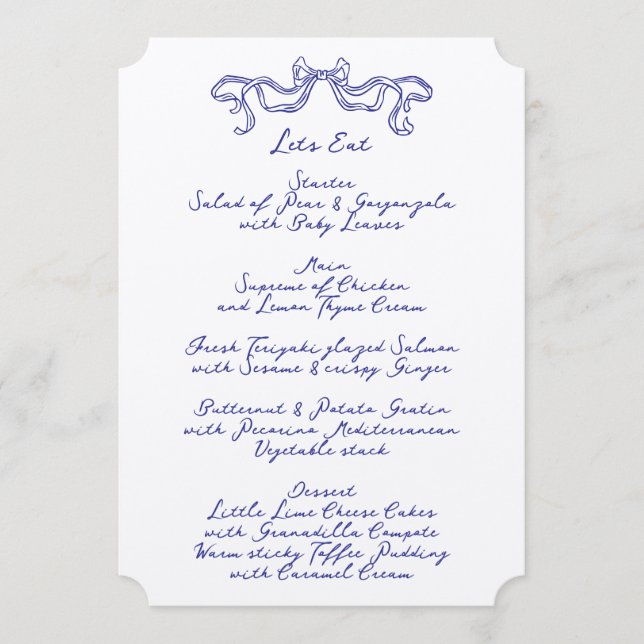 Lets Eat
Starter
Salad of Pear & Gorgonzola
with Baby Leaves
Main
Supreme of Chicken
and Lemon Thyme Cream
Fresh Teriyaki glazed Salmon
with Sesame & crispy Ginger
Butternut & Potato Gratin
with Pecorino Mediterranean
Vegetable stack
Dessert
Little Lime Cheese Cakes
with Granadilla Compote
Warm sticky Toffee Pudding
with Caramel Cream